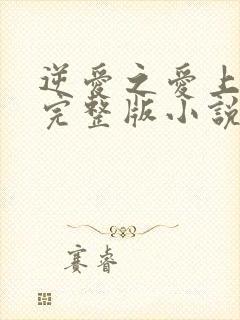 逆愛之愛上
完整版小說
賽睿